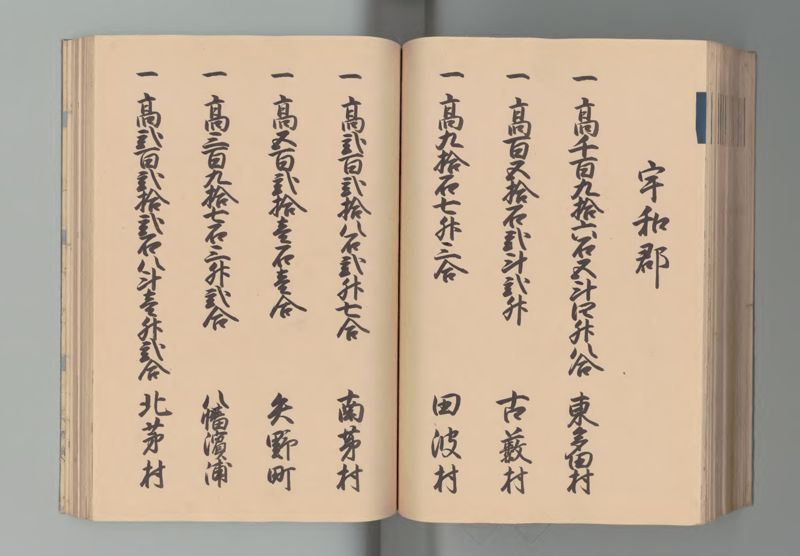 宇和郡
一 高千百九拾六石五斗四升八合 東多田村
一 高百五拾石弐斗弐升 古藪村
一 高九拾石七升三合 田波村
一 高弐百弐拾八石弐升七合 南茅村
一 高五百弐拾壱石壱合 矢野町
一 高三百九拾七石三升弐合 八幡濱浦
一 高弐百弐拾弐石八斗壱升弐合 北茅村